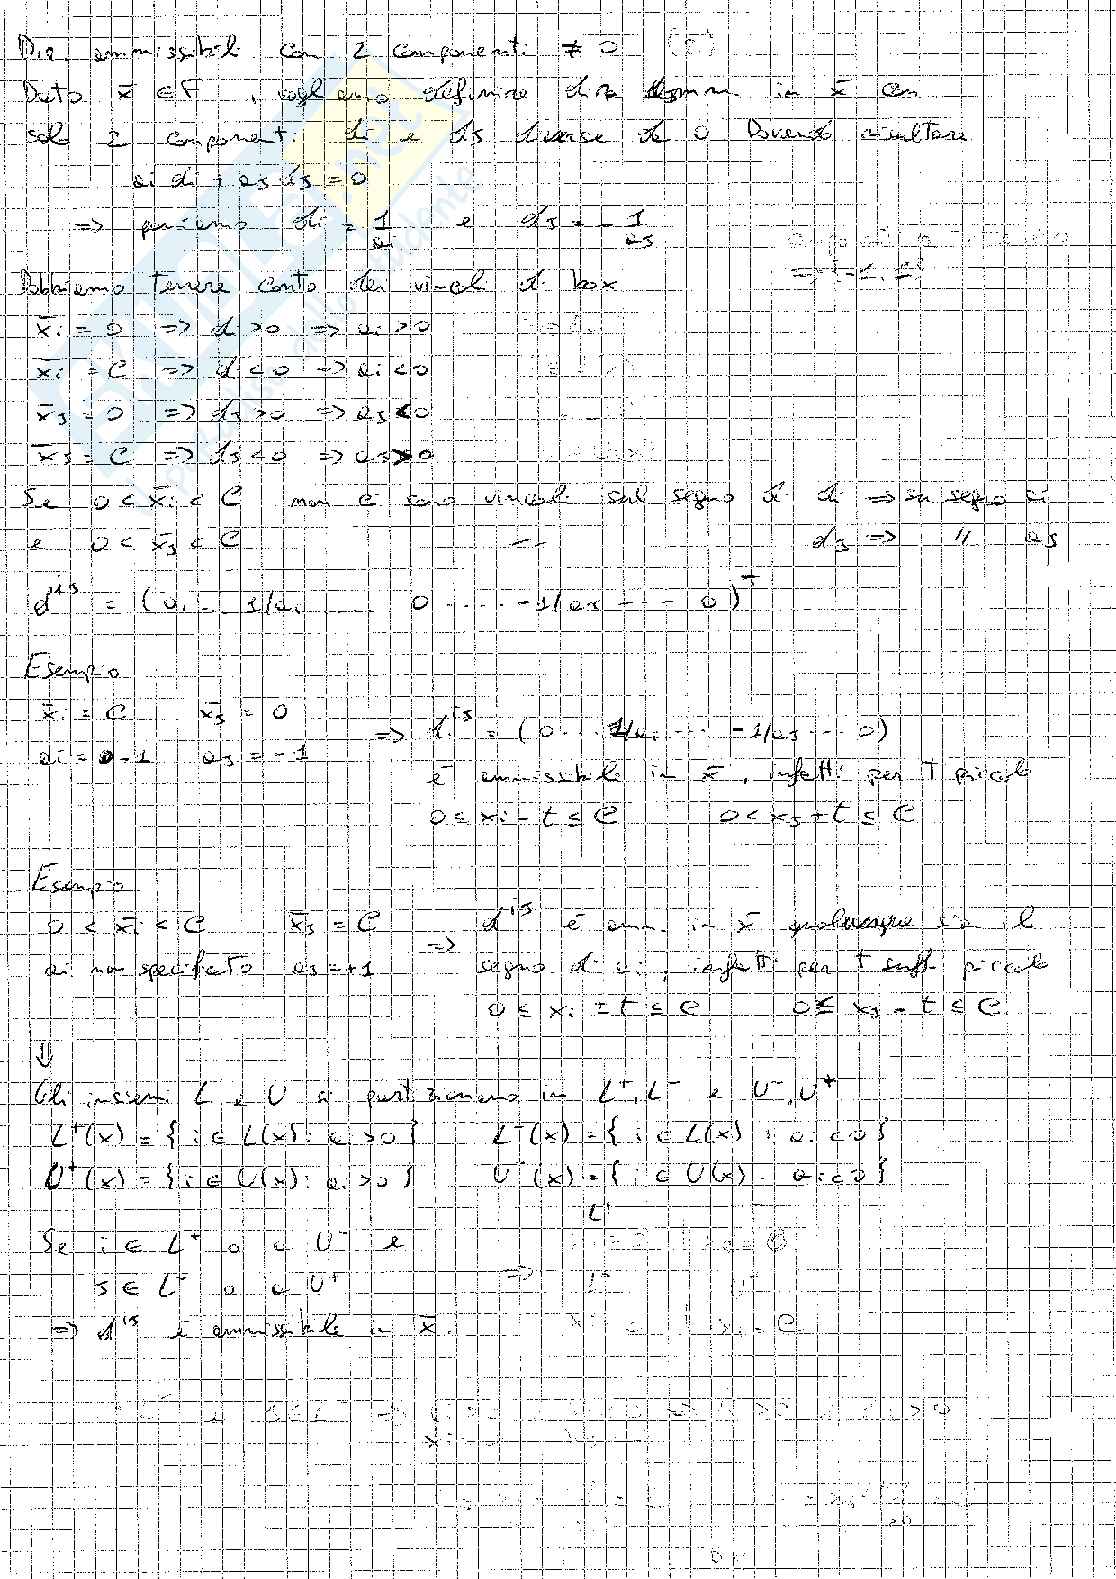 Dir. ammissibili con 2 componenti ≠ 0
Dato x̄ ∈ F, vogliamo definire dir amm in x̄ con
solo 2 componenti di e ds diverse da 0 Dovendo risultare
ai di + as ds = 0
=> poniamo di = 1/ai e ds = - 1/as
Dobbiamo tenere conto dei vincoli di box
x̄i = 0 => di > 0 => ai > 0
x̄i = C => di < 0 => ai < 0
x̄s = 0 => ds > 0 => as < 0
x̄s = C => ds < 0 => as > 0
Se 0 < x̄i < C non ci sono vincoli sul segno di di => su segno ai
e 0 < x̄s < C -- ds => " as
d^is = (0, .. 1/ai ... 0 .... -1/as - - 0)^T
Esempio
x̄i = C x̄s = 0
ai = -1 as = -1
=> d^is = (0 ... 1/ai ... -1/as ... 0)
è ammissibile in x̄, infatti per t piccolo
0 ≤ xi - t ≤ C 0 < xs + t ≤ C
Esempio
0 < x̄i < C x̄s = C
ai non specificato as = +1
=> d^is è amm. in x̄ qualunque sia il
segno di ai, infatti per t suff. piccolo
0 ≤ xi ± t ≤ C 0 ≤ xs - t ≤ C
⇓
Gli insiemi L e U si partizionano in L⁺, L⁻ e U⁻, U⁺
L⁺(x) = { i ∈ L(x) : ai > 0 } L⁻(x) = { i ∈ L(x) : ai < 0 }
U⁺(x) = { i ∈ U(x) : ai > 0 } U⁻(x) = { i ∈ U(x) : ai < 0 }
Se i ∈ L⁺ o ∈ U⁻ e
s ∈ L⁻ o ∈ U⁺
=> d^is è ammissibile in x̄.